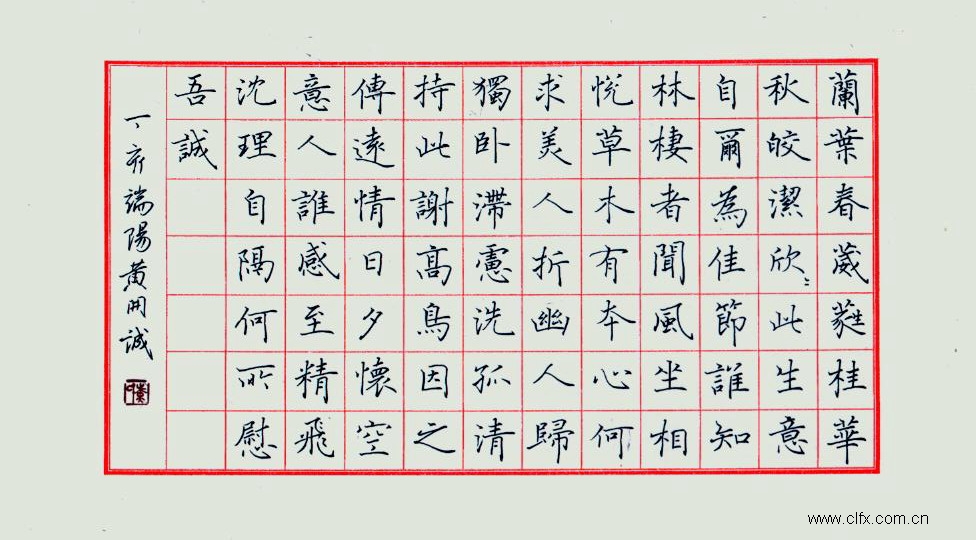 蘭葉春葳蕤桂華
秋皎潔欣〻此生意
自爾為佳節誰知
林棲者聞風坐相
悅草木有本心何
求美人折幽人歸
獨卧滯慮洗孤清
持此謝高鳥因之
傳遠情日夕懷空
意人誰感至精飛
沈理自隔何所慰
吾誠
丁亥端陽黄開誠
www.clfx.com.cn